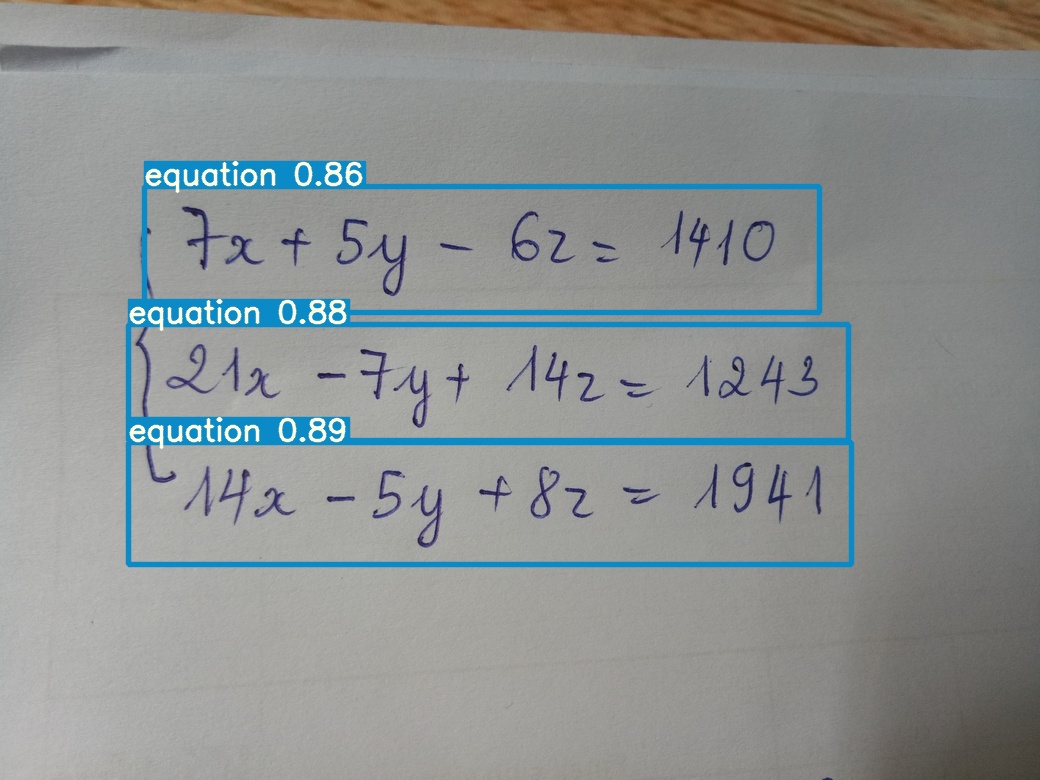 equation 0.86
7x + 5y - 6z = 1410
equation 0.88
21x - 7y + 14z = 1243
equation 0.89
14x - 5y + 8z = 1941